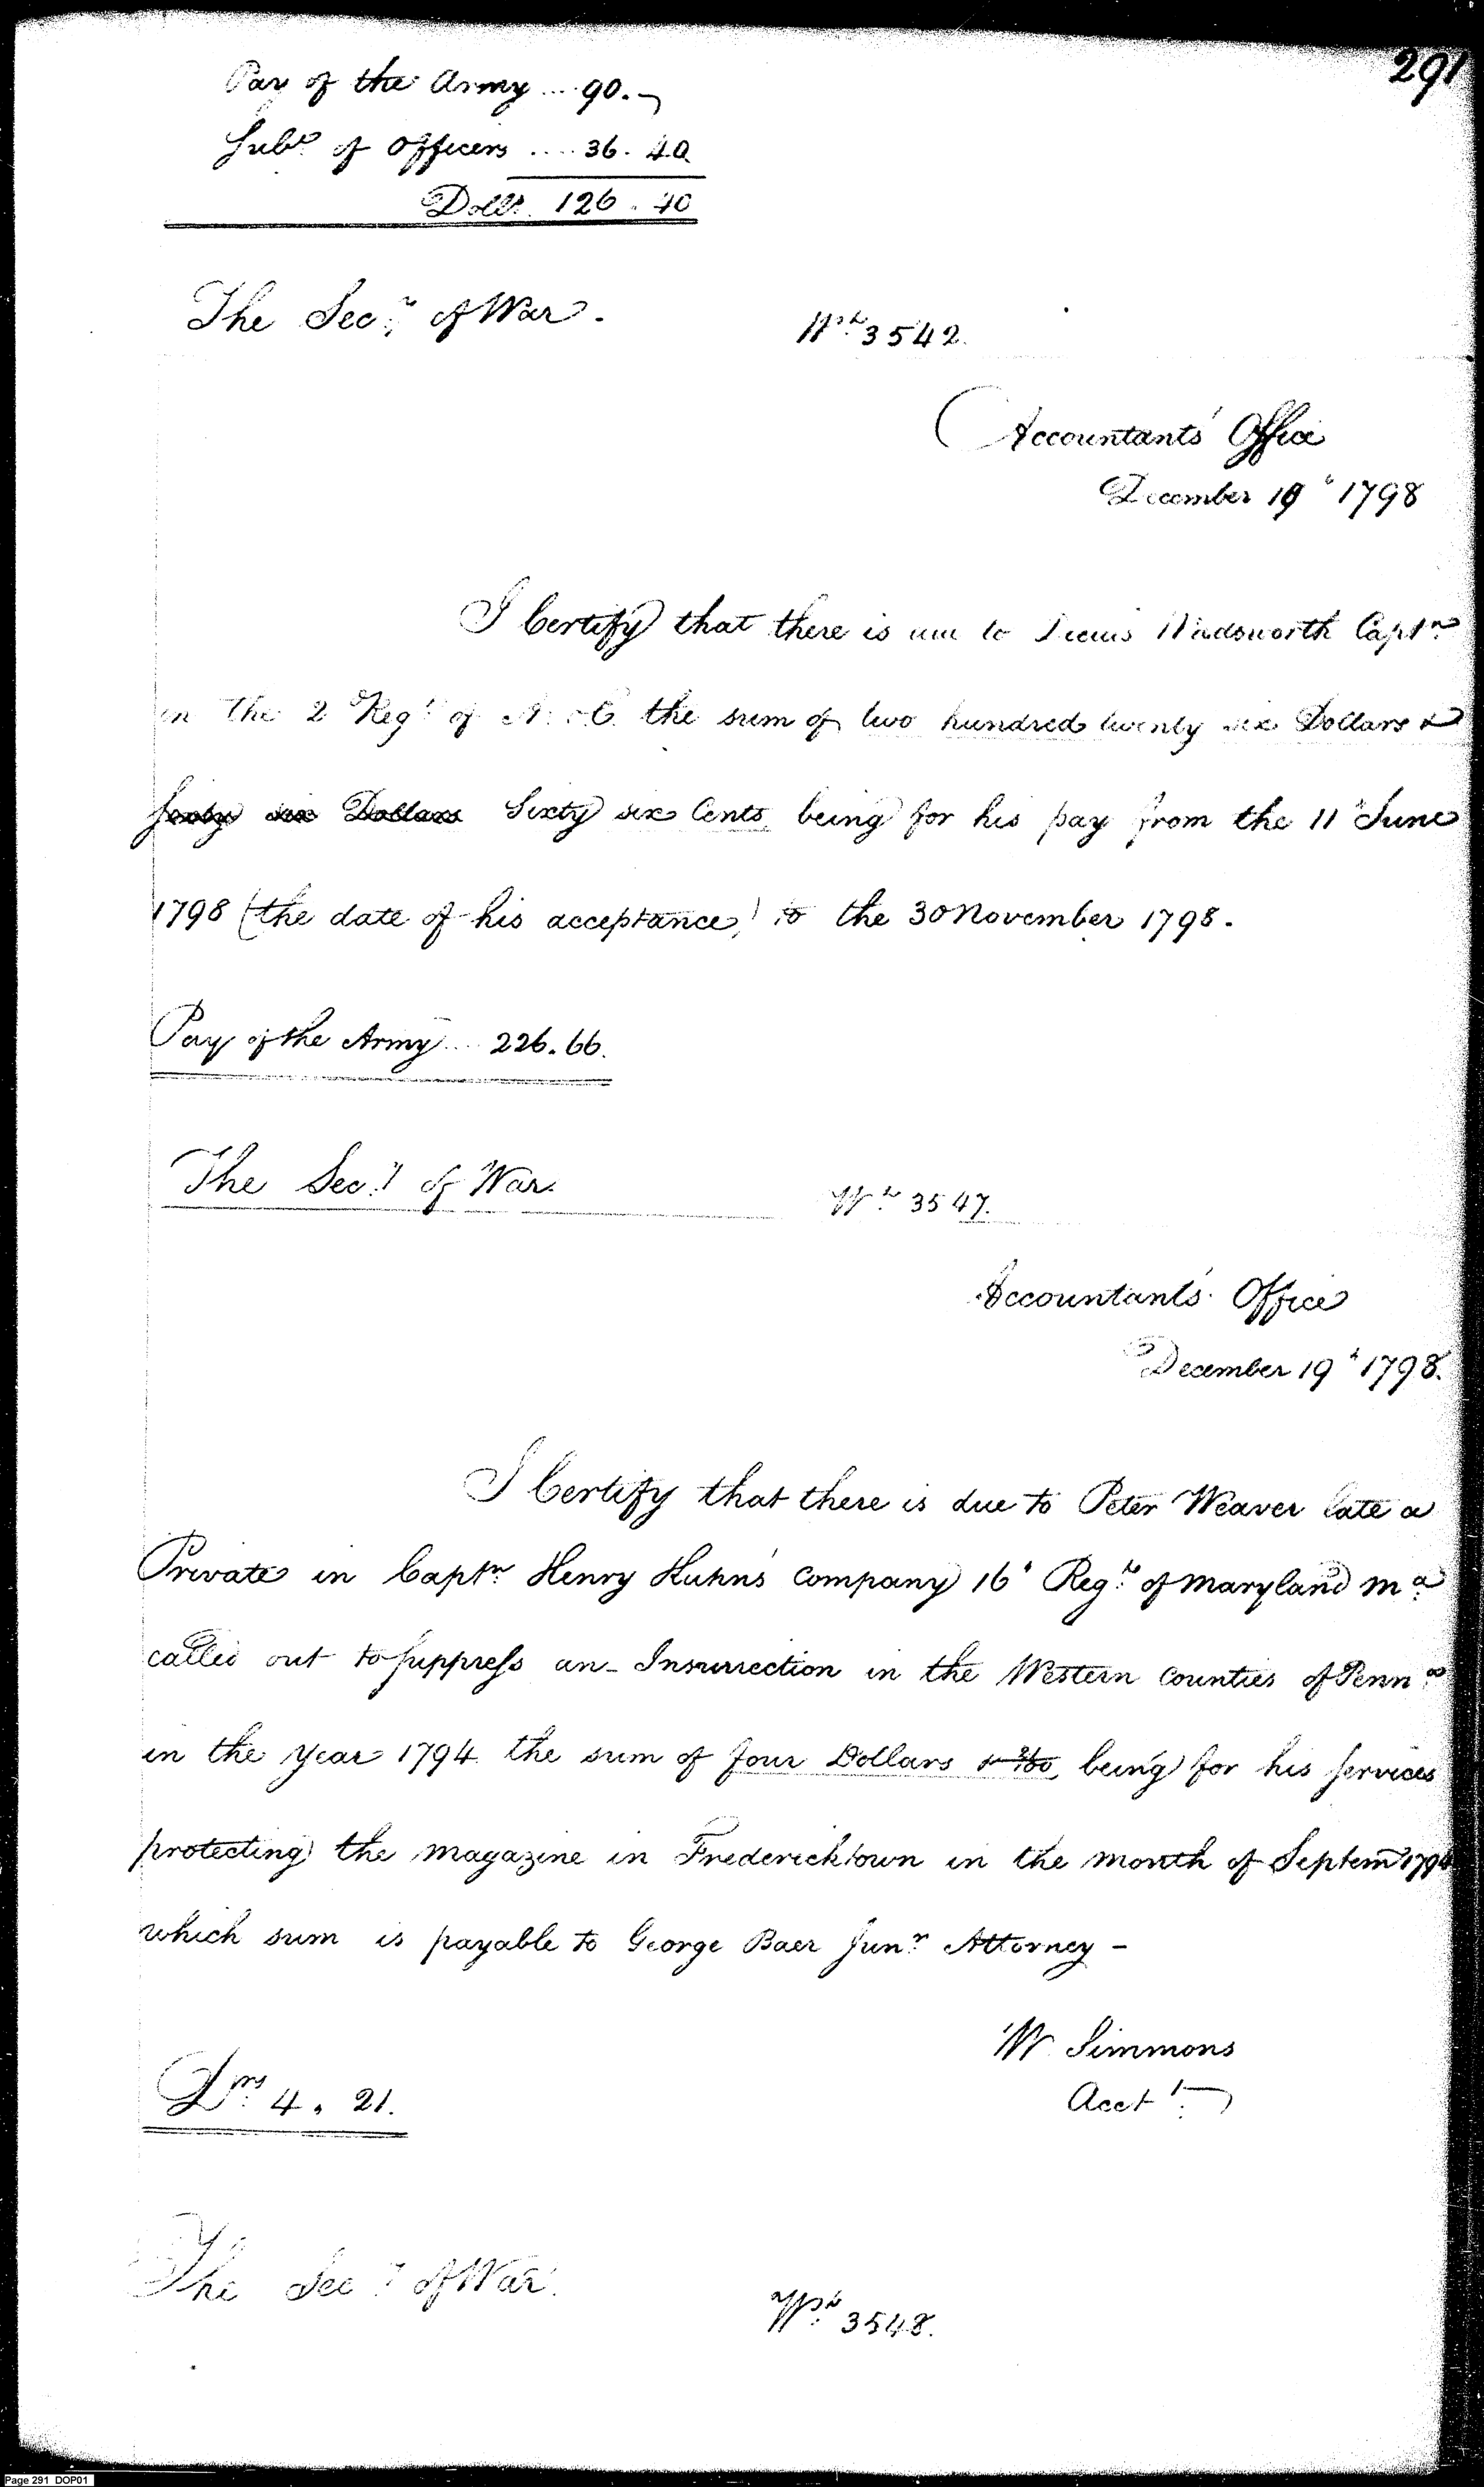 291
Pay of the Army .... 90.-
Subs. of Officers .... 36. 40
Dolls. 126. 40
The Secy. of War.
Wt. 3542.
Accountants' Office
December 19th 1798
I Certify that there is due to Decius Wadsworth Captn.
in the 2 Regt. of A. & E. the sum of two hundred twenty six Dollars &
six Dollars Sixty six Cents, being for his pay from the 11th June
1798 (the date of his acceptance) to the 30 November 1798.
Pay of the Army .... 226.66.
The Secy. of War.
Wt. 3547.
Accountant's Office
December 19th 1798.
I Certify that there is due to Peter Weaver late a
Private in Captn. Henry Kuhn's Company 16th Regt. of Maryland Ma.
called out to suppress an Insurrection in the Western Counties of Penna.
in the Year 1794 the sum of four Dollars & 21/100 being for his services
protecting the magazine in Fredericktown in the month of Septem 1794
which sum is payable to George Baer Junr. Attorney -
W Simmons
Acct.
Drs. 4. 21.
The Secy. of War.
Wt. 3548.
Page 291 DOP01